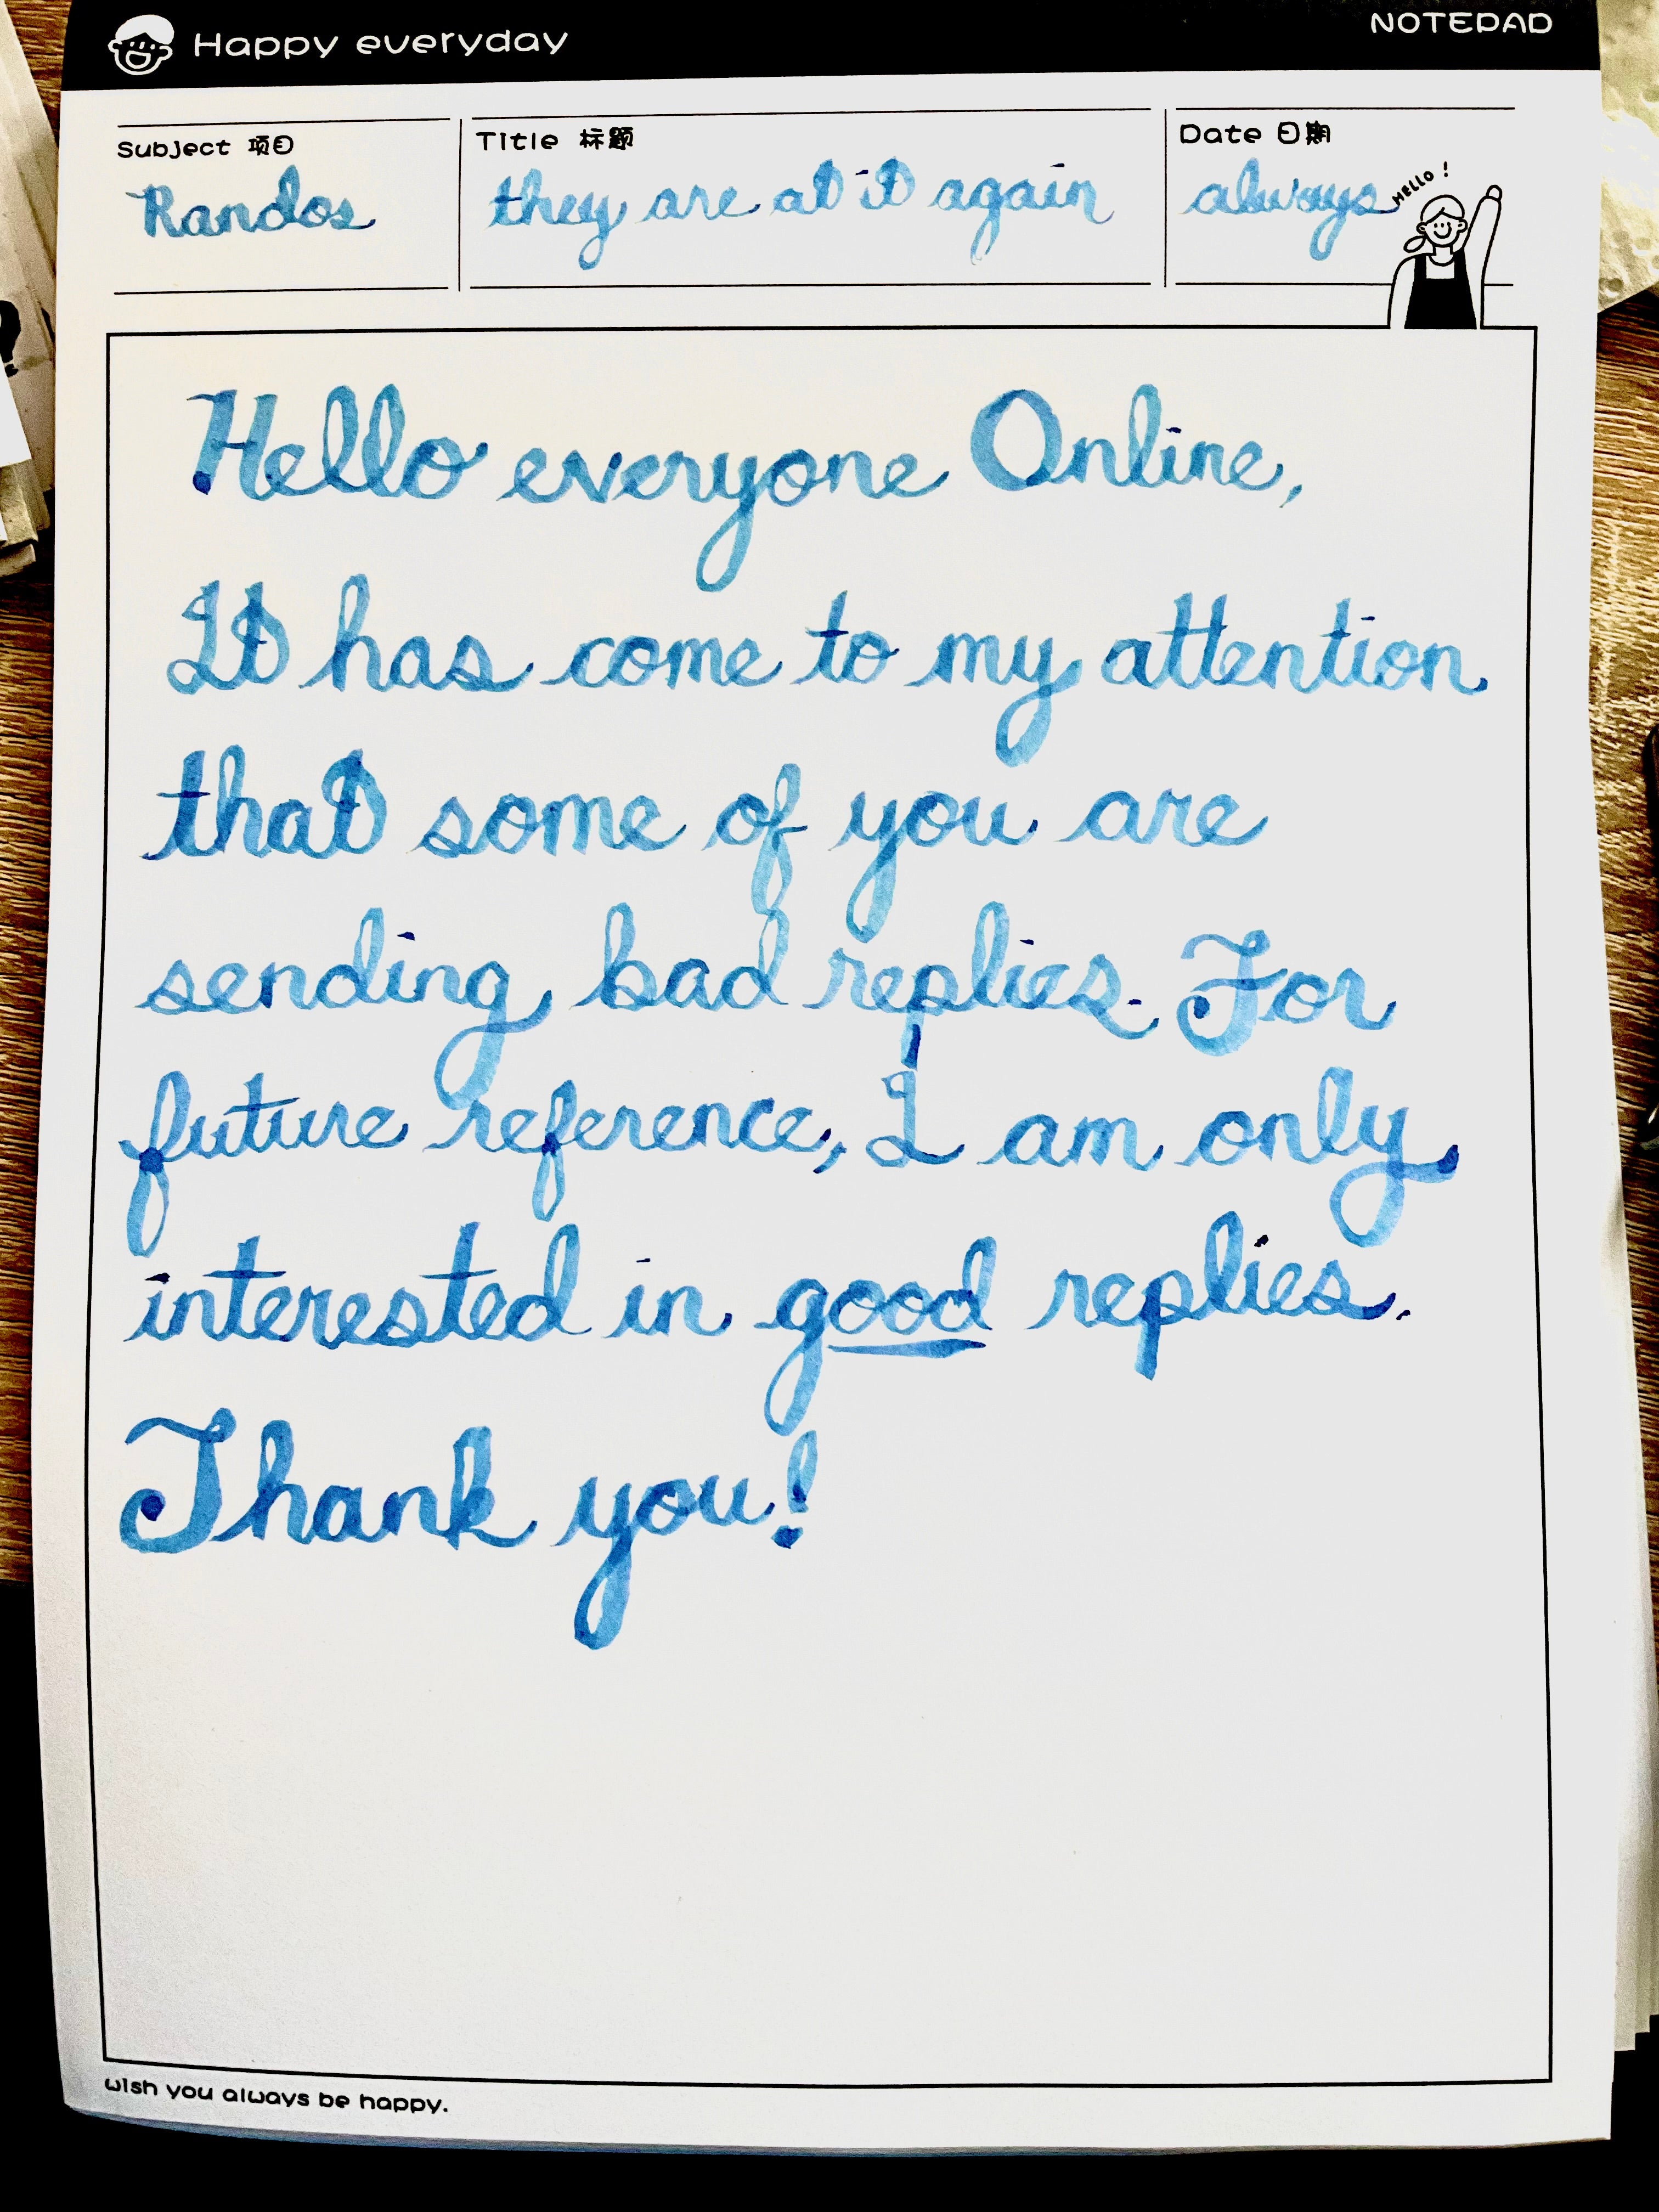 Happy everyday
NOTEPAD
Subject 项目
Title 标题
Date 日期
Randos
they are at it again
always
HELLO!
Hello everyone Online,
It has come to my attention
that some of you are
sending bad replies. For
future reference, I am only
interested in good replies.
Thank you!
wish you always be happy.